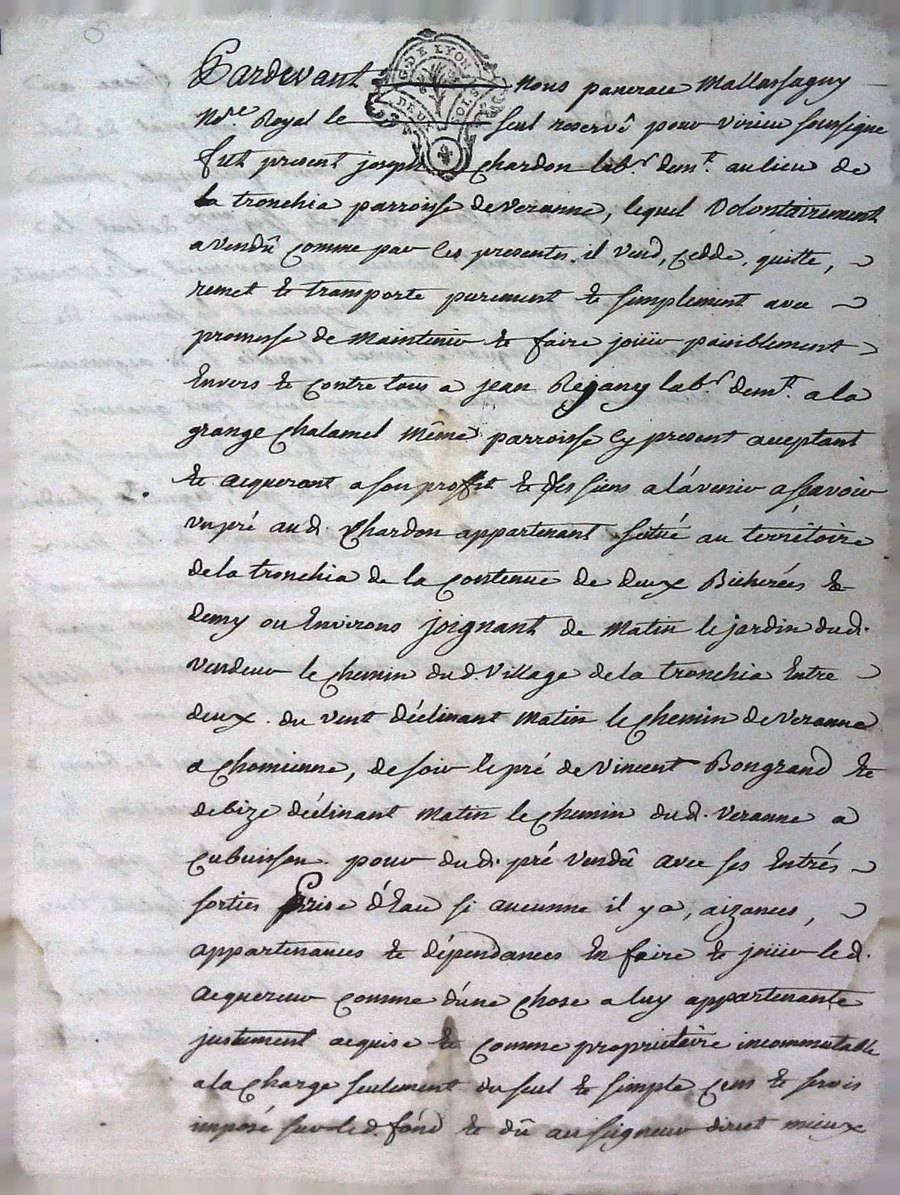 Pardevant Nous pancrace Mallassagny
No.re Royal le seul reservé pour virieu soussigné
fut present joseph Chardon lab.r dem.t au lieu de
la tronchia parroisse de veranne, lequel Volontairement
a vendû comme par Ces presentes il vend, cedde, quitte,
remet & transporte purement & simplement avec
promesse de maintenir & faire joüir paisiblement
Envers & contre tous a jean Régany lab.r dem.t a la
grange Chalamel même parroisse Cy present acceptant
& acquerant a son proffit & des siens a l'avenir a sçavoir
un pré aud. Chardon appartenant situé au territoire
de la tronchia de la contenue de deux Bicherées &
demy ou Environs joignant de matin le jardin dud.
vendeur le chemin dud. village de la tronchia Entre
deux. du vent déclinant matin le chemin de Veranne
a Chomienne, de soir le pré de vincent Bongrand &
de bize déclinant matin le chemin dud. veranne a
Cubuisson. pour dud. pré vendû avec ses Entrés
sorties Prise d'Eau si aucunne il y a, aizances,
appartenances & dépendances En faire & joüir led.
acquereur comme d'une chose a luy appartenante
justement acquise & comme propriétaire incommutable
a la charge seulement du seul & simple Cens & servis
imposé sur led. fond & dû au seigneur direct mieux
G. DE LYON
DEUX SOLS